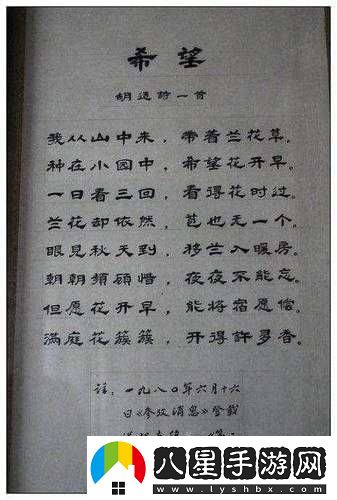 希望
胡适诗一首
我从山中来，带着兰花草。
种在小园中，希望花开早。
一日看三回，看得花时过。
兰花却依然，苞也无一个。
眼见秋天到，移兰入暖房。
朝朝频顾惜，夜夜不能忘。
但愿花开早，能将宿愿偿。
满庭花簇簇，开得許多香。
注：一九八〇年六月十六
日《参改消息》登载
八星手游网
www.lyshbx.com